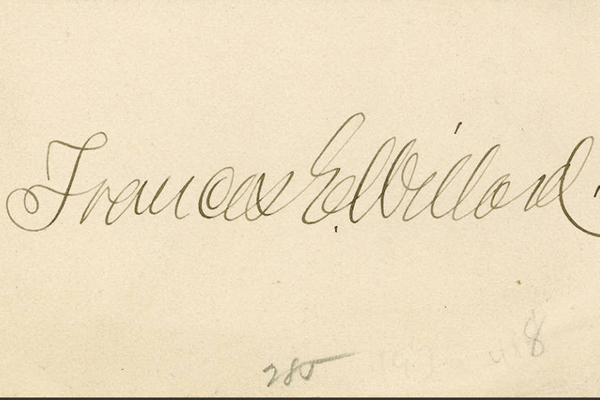 Frances E. Willard.
285